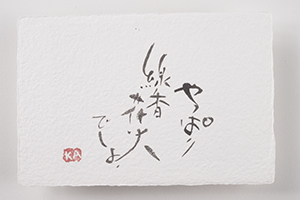 やっぱり
線香
花火
でしょ
KA